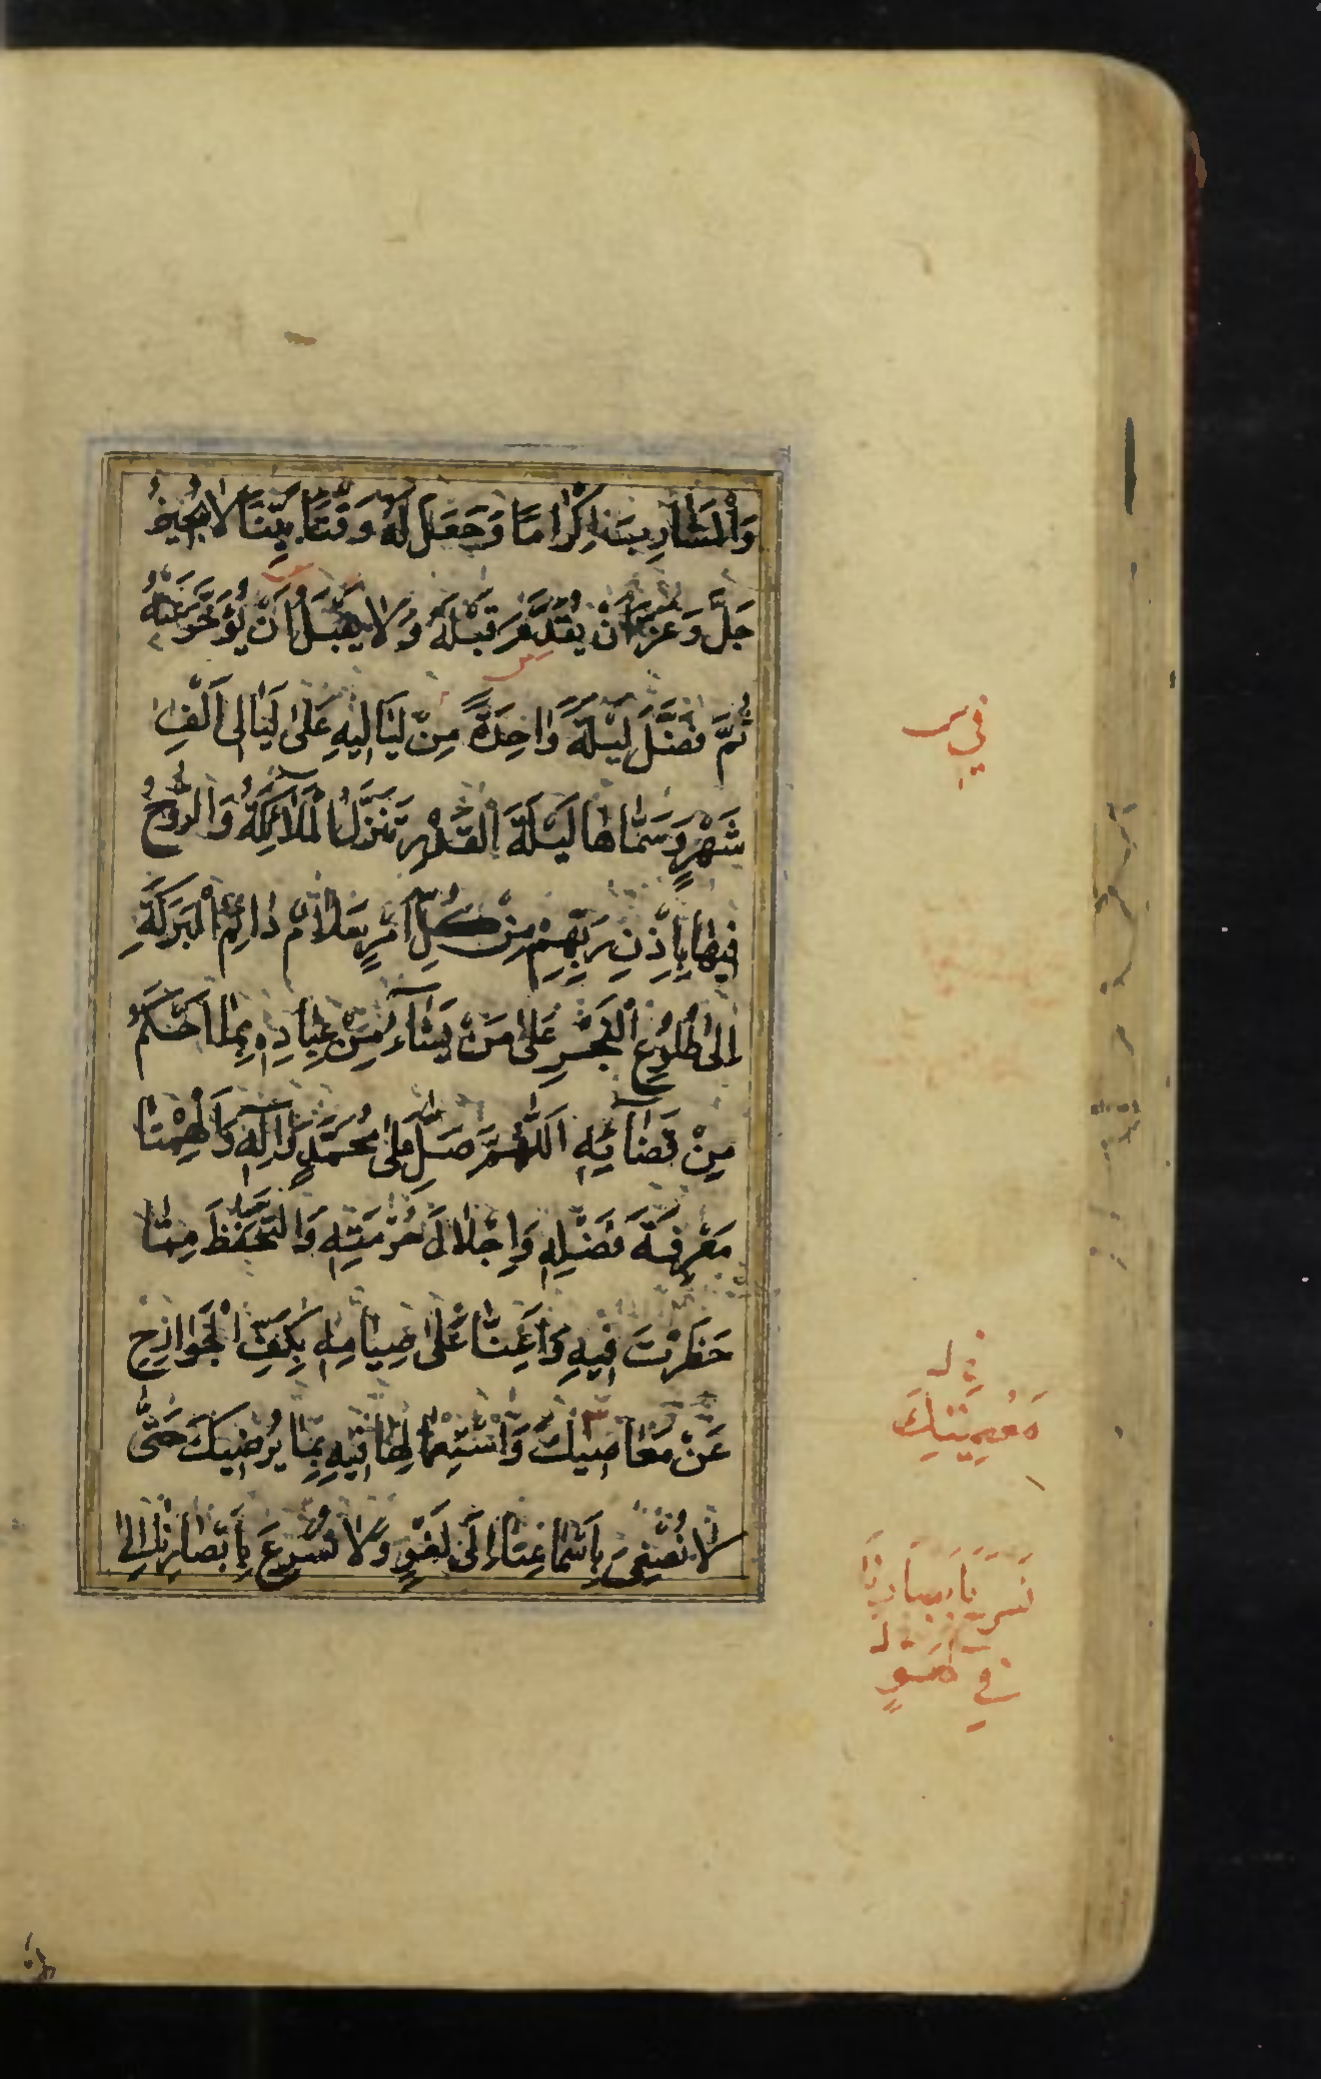 وَالْمَشَارِبَ اِكْرَامًا وَجَعَلَ لَهُ وَقْتًا بَيِّنًا لَا يُجِيزُ
جَلَّ وَعَزَّ اَنْ يُقَدَّمَ قَبْلَهُ وَلَا يَقْبَلُ اَنْ يُؤَخَّرَ عَنْهُ
ثُمَّ فَضَّلَ لَيْلَةً وَاحِدَةً مِنْ لَيَالِيهِ عَلَى لَيَالِى اَلْفِ
شَهْرٍ وَسَمَّاهَا لَيْلَةَ الْقَدْرِ تَنَزَّلُ الْمَلَائِكَةُ وَالرُّوحُ
فِيهَا بِاِذْنِ رَبِّهِمْ مِنْ كُلِّ اَمْرٍ سَلَامٌ دَائِمُ الْبَرَكَةِ
اِلَى طُلُوعِ الْفَجْرِ عَلَى مَنْ يَشَاءُ مِنْ عِبَادِهِ بِمَا اَحْكَمَ
مِنْ قَضَائِهِ اَللّٰهُمَّ صَلِّ عَلَى مُحَمَّدٍ وَآلِهِ وَاَلْهِمْنَا
مَعْرِفَةَ فَضْلِهِ وَاِجْلَالَ حُرْمَتِهِ وَالتَّحَفُّظَ مِمَّا
حَظَرْتَ فِيهِ وَاَعِنَّا عَلَى صِيَامِهِ بِكَفِّ الْجَوَارِحِ
عَنْ مَعَاصِيكَ وَاسْتِعْمَالِهَا فِيهِ بِمَا يُرْضِيكَ حَتَّى
لَا نُصْغِىَ بِاَسْمَاعِنَا اِلَى لَغْوٍ وَلَا نُسْرِعَ بِاَبْصَارِنَا اِلَى
فِي س
مَعْصِيَتِكَ